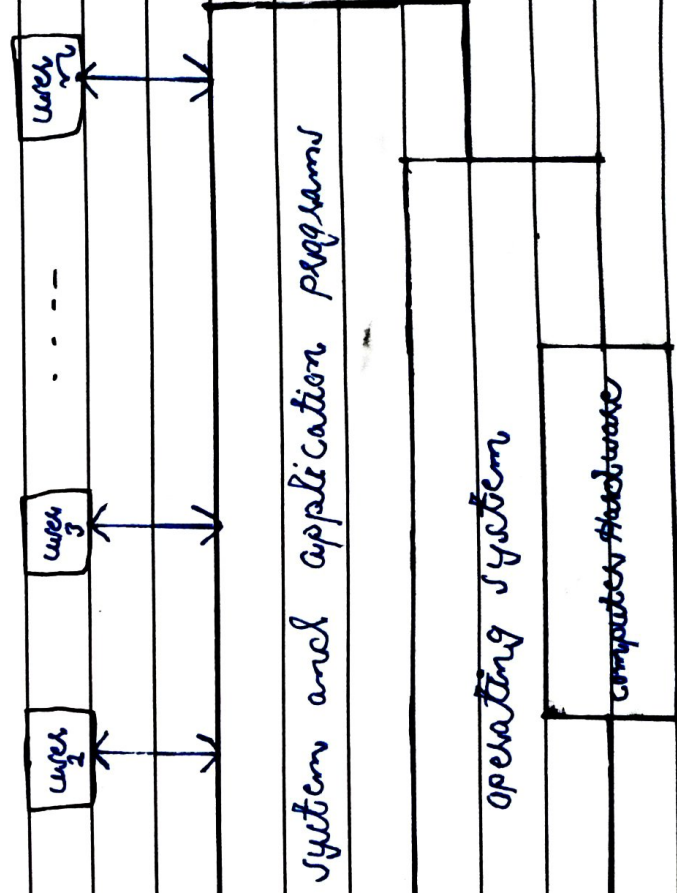 user
2
user
3
....
user
n
system and application programs
operating system
computer Hardware